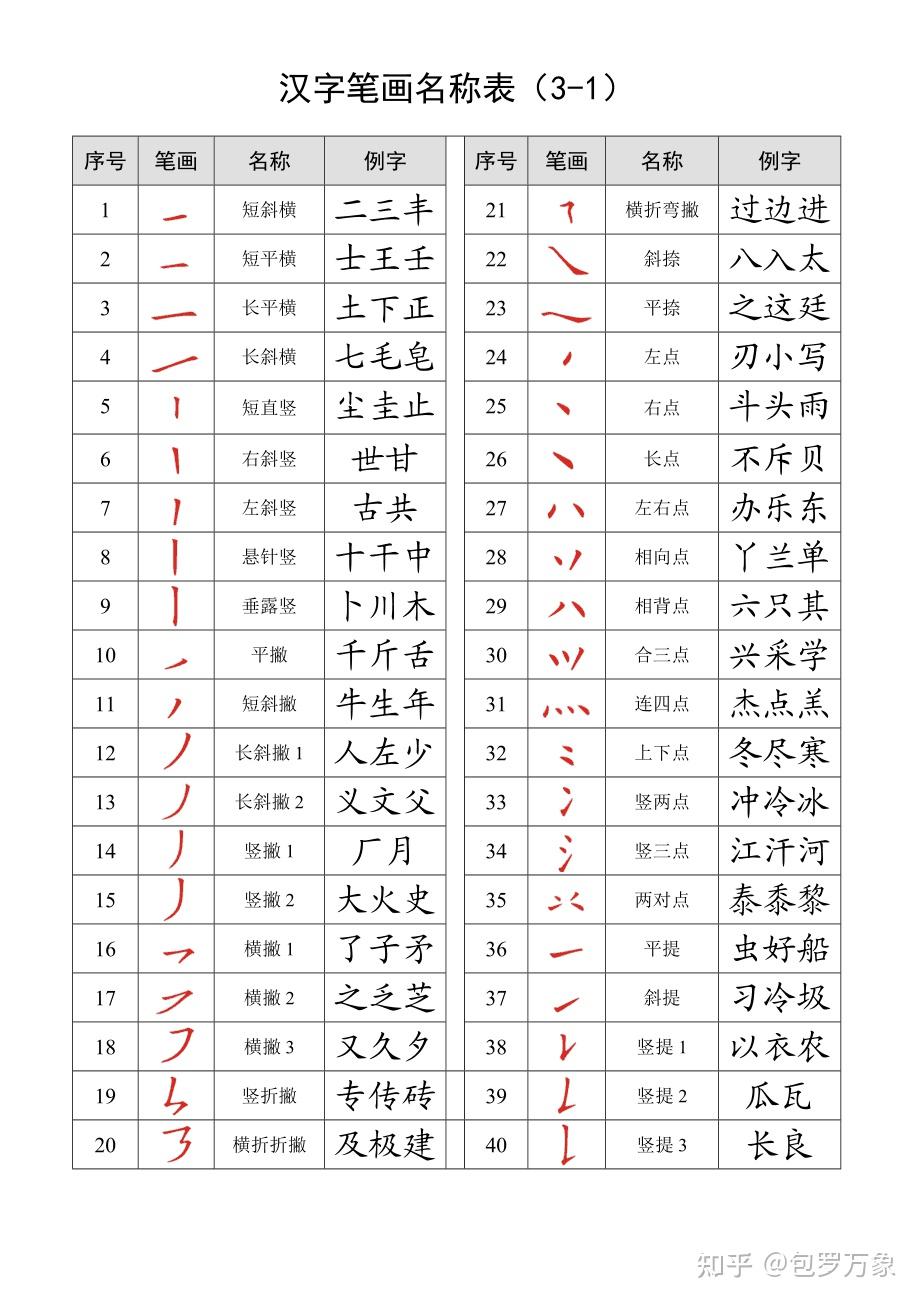 汉字笔画名称表（3-1）
序号 笔画 名称 例字 序号 笔画 名称 例字
1 短斜横 二三丰 21 横折弯撇 过边进
2 短平横 士王壬 22 斜捺 八入太
3 长平横 土下正 23 平捺 之这廷
4 长斜横 七毛皂 24 左点 刃小写
5 短直竖 尘圭止 25 右点 斗头雨
6 右斜竖 世甘 26 长点 不斥贝
7 左斜竖 古共 27 左右点 办乐东
8 悬针竖 十干中 28 相向点 丫兰单
9 垂露竖 卜川木 29 相背点 六只其
10 平撇 千斤舌 30 合三点 兴采学
11 短斜撇 牛生年 31 连四点 杰点羔
12 长斜撇 1 人左少 32 上下点 冬尽寒
13 长斜撇 2 义文父 33 竖两点 冲冷冰
14 竖撇 1 厂月 34 竖三点 江汗河
15 竖撇 2 大火史 35 两对点 泰黍黎
16 横撇 1 了子矛 36 平提 虫好船
17 横撇 2 之乏芝 37 斜提 习冷圾
18 横撇 3 又久夕 38 竖提 1 以衣农
19 竖折撇 专传砖 39 竖提 2 瓜瓦
20 横折折撇 及极建 40 竖提 3 长良
知乎 @包罗万象